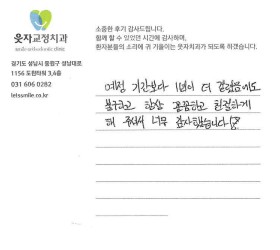 소중한 후기 감사드립니다.
함께 할 수 있었던 시간에 감사하며,
환자분들의 소리에 귀 기울이는 웃자치과가 되도록 하겠습니다.
웃자교정치과
경기도 성남시 중원구 성남대로
1156 도현타워 3,4층
031 606 0282
letsumile.co.kr
예정 기간보다 1년이 더 걸렸음에도
불구하고 항상 꼼꼼하고 친절하게
해 주셔서 너무 감사했습니다